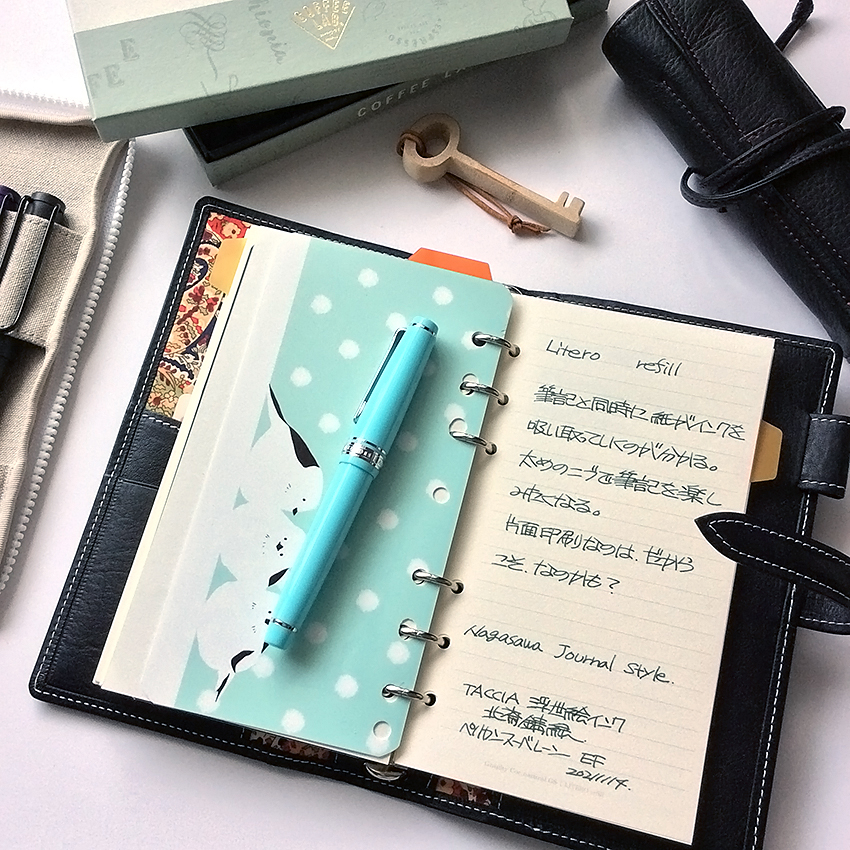 COFFEE LA
Litero refill
筆記と同時に紙がインクを
吸い取っていくのが分かる。
太めのニブで筆記を楽し
みたくなる。
片面印刷なのは、だから
こそ、なのかも?
Nagasawa Journal Style.
TACCIA 浮世絵インク
北斎錆緑
ペリカンスーベレーン EF
2021.11.14.